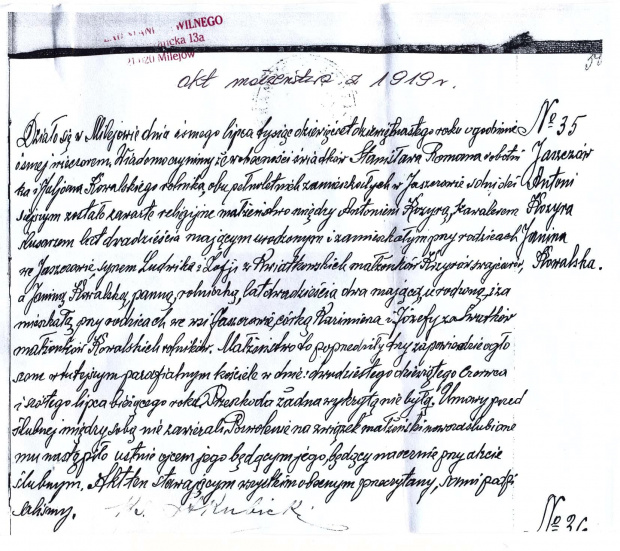 WILNEGO
13a
Milejów
akt małżeństwa z 1919 r.
Działo się w Milejowie dnia ósmego lipca tysiąc dziewięćset dziewiętnastego roku o godzinie
ósmej wieczorem. Wiadomo czynimy, że w obecności świadków Stanisława Romana robotni
ka i Juljana Kowalskiego rolnika, obu pełnoletnich zamieszkałych w Jaszczowie w dniu dzi
siejszym zostało zawarte religijne małżeństwo między Antonim Kozyrą, kawalerem
lat dwadzieścia mającym urodzonym i zamieszkałym przy rodzicach
we Jaszczowie, synem Ludwika i Zofji z Kwiatkowskich małżonków Kozyrów
a Janiną Kowalską, panną, rolniczką, lat dwadzieścia dwa mającą, urodzoną i za
mieszkałą przy rodzicach we wsi Jaszczowie, córką Kazimierza i Józefy
małżonków Kowalskich rolników. Małżeństwo to poprzedziły trzy zapowiedzie ogło
szone w tutejszym parafjalnym kościele w dnie: dwudziestego dziewiątego Czerwca
i szóstego lipca bieżącego roku. Przeszkoda żadna wykrytą nie była. Umowy przed
ślubnej między sobą nie zawierali. Pozwolenie na związek małżeński nowozaślubione
mu nastąpiło ustnie ojcem jego będącym przy akcie
ślubnym. Akt ten stawającym wszystkim obecnym przeczytany,
saliśmy. Ks. Kubicki
№ 35
Jaszczów
Antoni
Kozyra
Janina
Kowalska.
№ 36